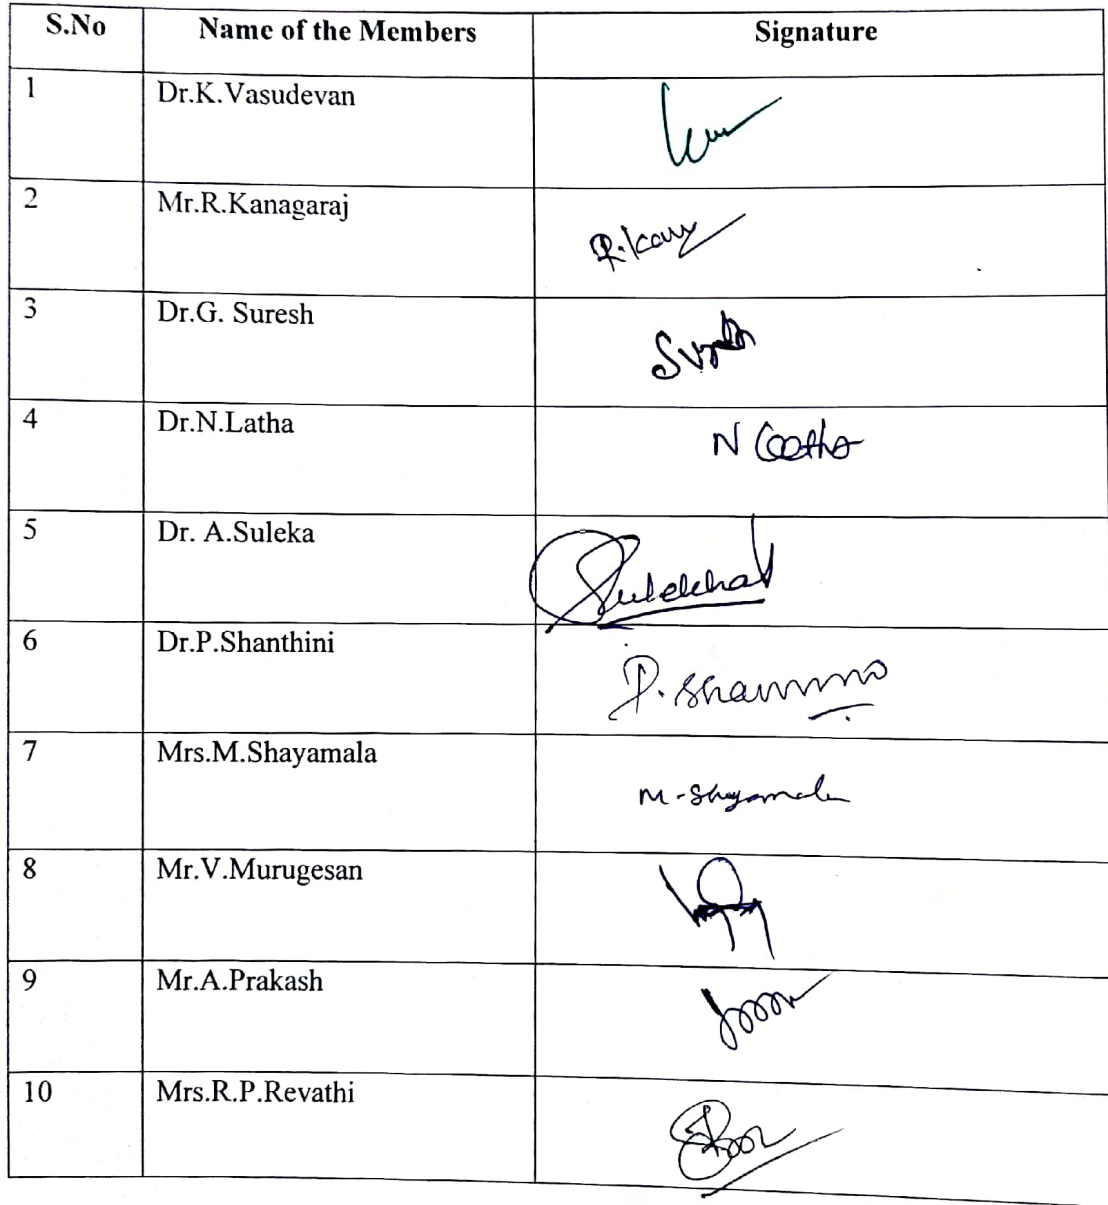 S.No Name of the Members Signature
1 Dr.K.Vasudevan
2 Mr.R.Kanagaraj
3 Dr.G. Suresh
4 Dr.N.Latha N Latha
5 Dr. A.Suleka Sulekha
6 Dr.P.Shanthini
7 Mrs.M.Shayamala M-Shyamala
8 Mr.V.Murugesan
9 Mr.A.Prakash
10 Mrs.R.P.Revathi